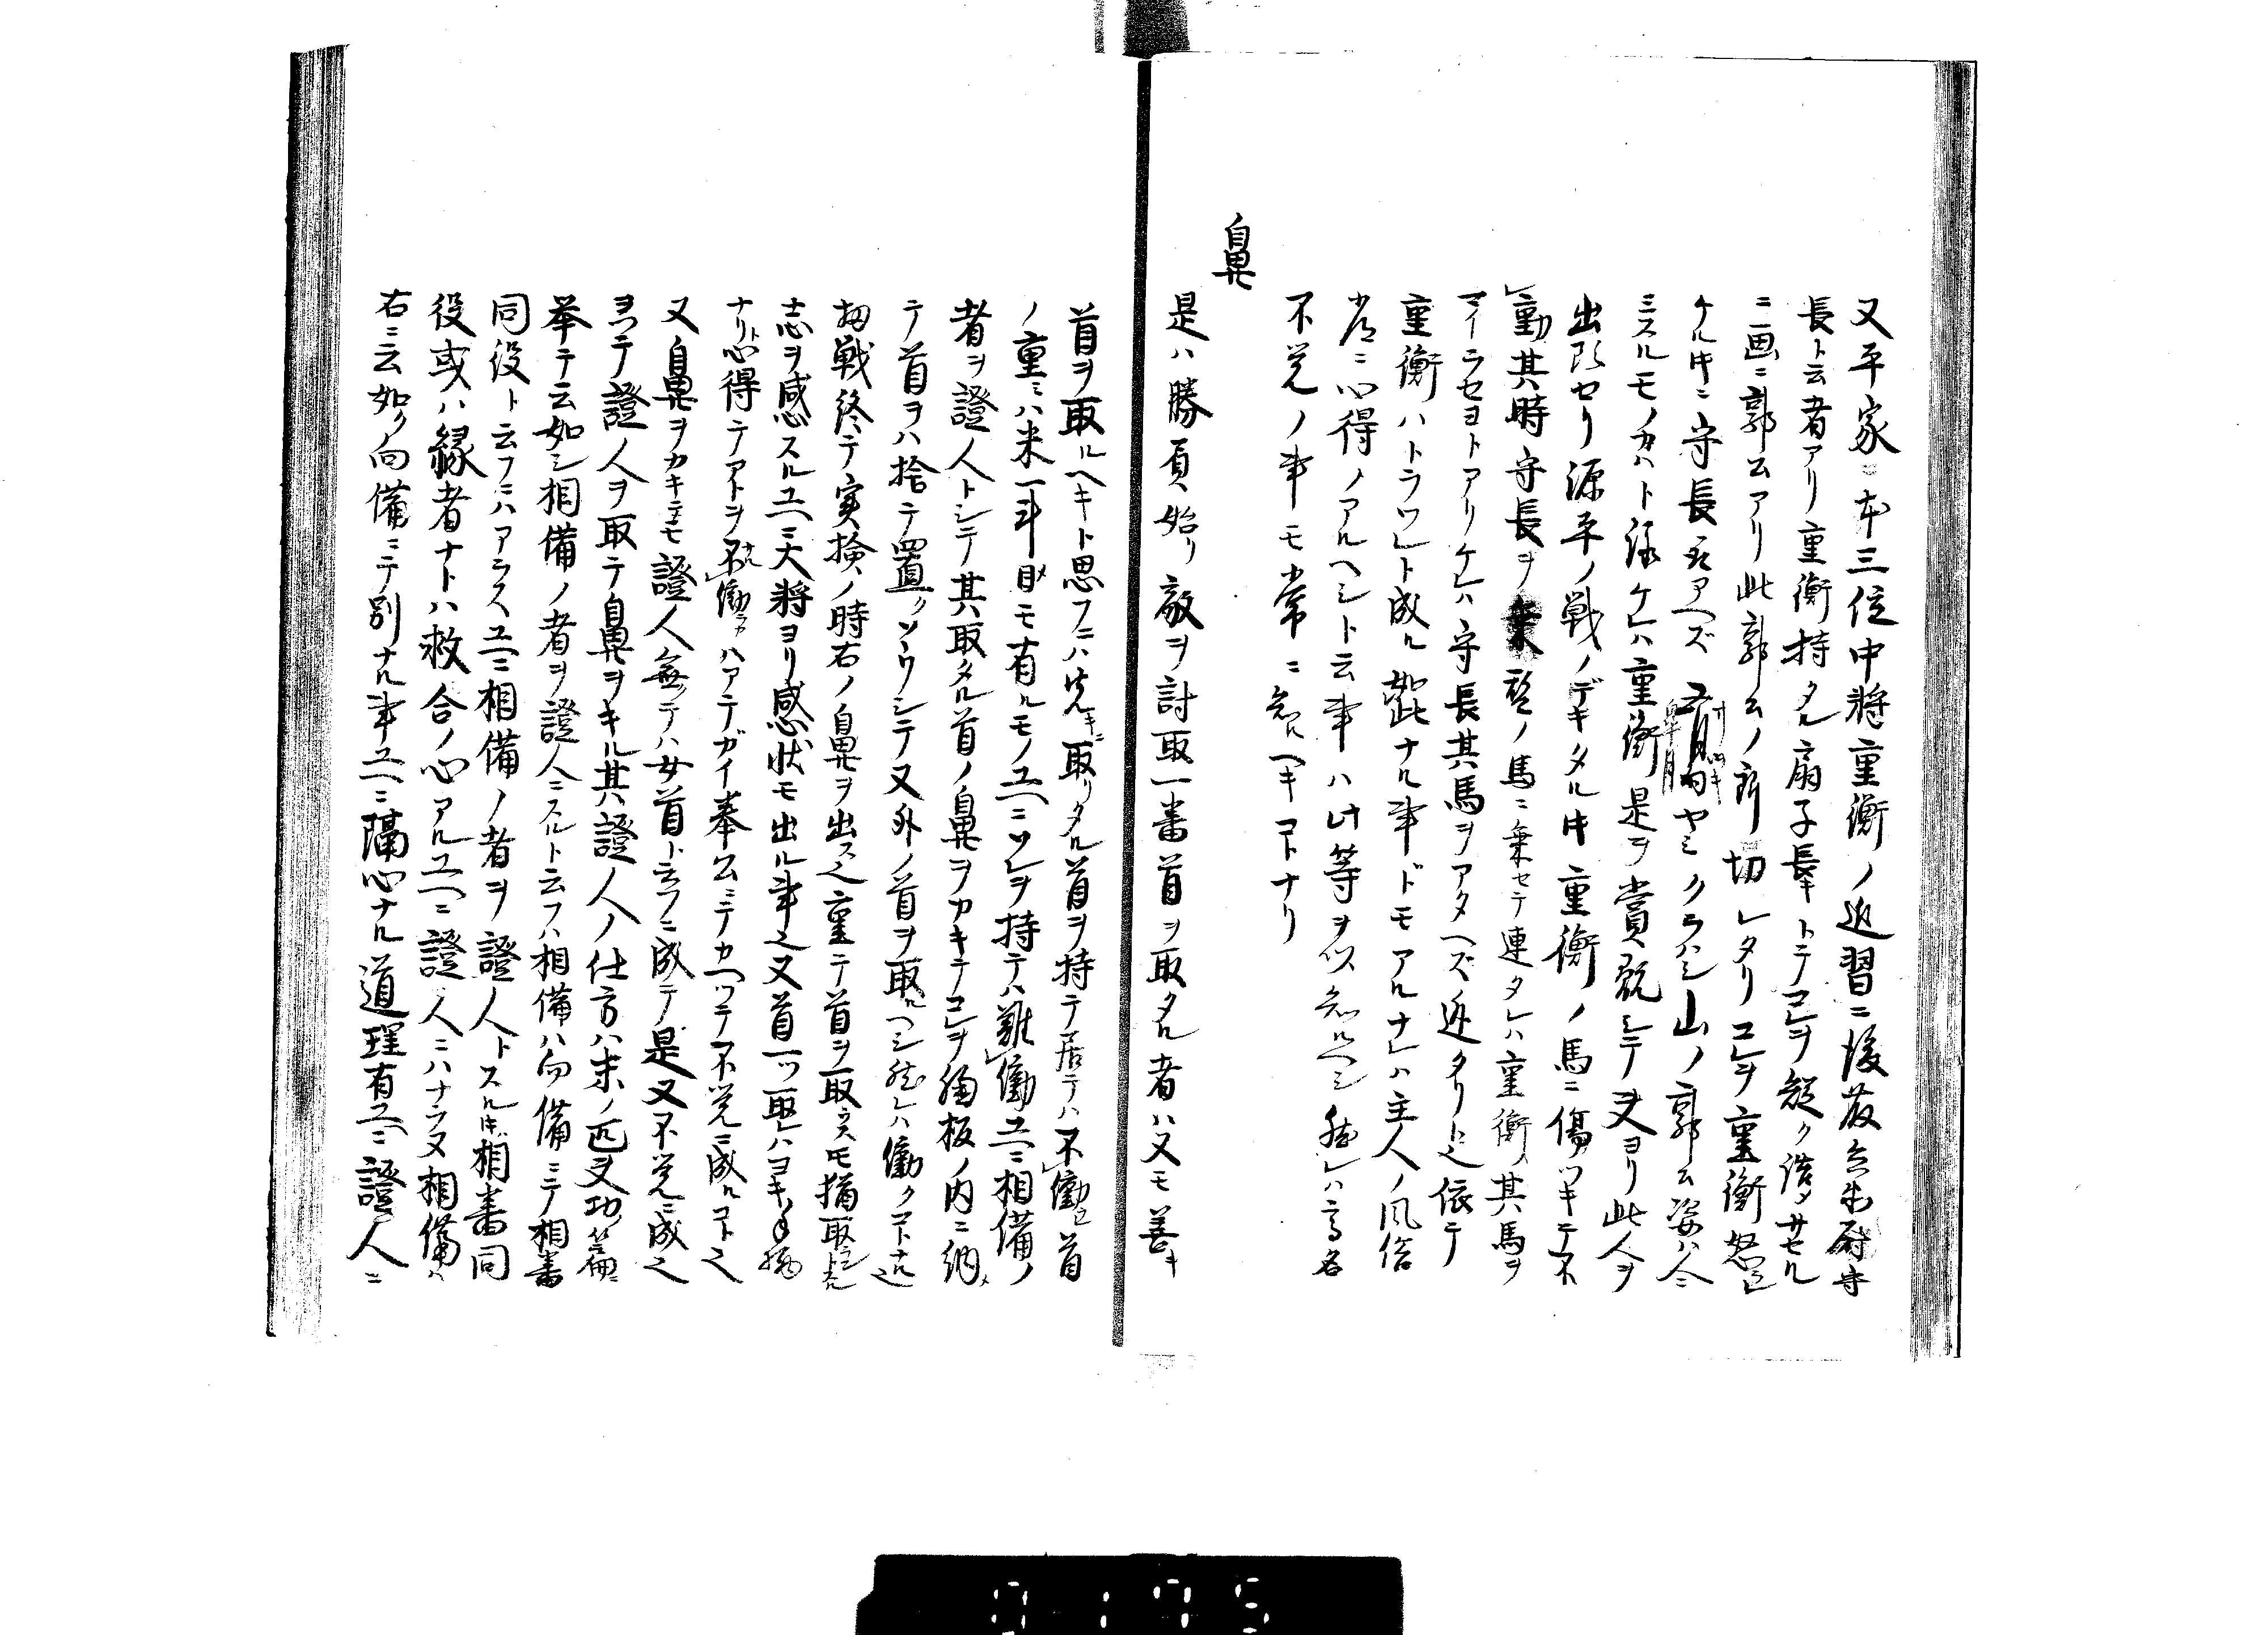 又平家ニ本三位中将重衡ノ近習ニ後藤兵衛尉守
長ト云者アリ重衡持タル扇子長キトテコレヲ短ク詰タサセル
ニ画ニ郭公アリ此郭公ノ所切レタリコレヲ重衡怒
ケル時ニ守長アヘズ五月ヤミクラハシ山ノ郭公姿ハ人ニ
ミスルモノカハト詠ケレハ重衡是ヲ賞翫シテ夫ヨリ此人ヲ
出頭セリ源平ノ戦ノデキタル時重衡ノ馬ニ傷ツキテ不
働其時守長ヲ乗替ノ馬ニ乗セテ連タレハ重衡其馬ヲ
マイラセヨトアリケレハ守長其馬ヲアタヘズ逃タリト也依テ
重衡ハトラワレト成ル如此ナル事ドモアルナレハ主人ノ風俗
常ニ心得ノアルヘシト云事ハ此等ヲ以知ルヘシ然レハ高名
不覚ノ事モ常ニ知ルヘキコトナリ
鼻
是ハ勝負始リ敵ヲ討取一番首ヲ取タル者ハ又モ善キ
首ヲ取ルヘキト思フニハ先キニ取リタル首ヲ持テ居テハ不働也首
ノ重ミハ米一斗目モ有ルモノユヘニソレヲ持テハ難働ユヘニ相備ノ
者ヲ證人トシテ其取タル首ノ鼻ヲカキテコレヲ胸板ノ内ニ納メ
テ首ヲハ捨テ置クソウシテ又外ノ首ヲ取ルヘシ然レハ働クコトナル也
扨戦終テ実検ノ時右ノ鼻ヲ出ス也重テ首ヲ取ラズトモ猶取ントノ
志ヲ感スルユヘニ大将ヨリ感状モ出ル事也又首一ツ取レハヨキ手柄
ナリト心得テアトヲ不働ハアテガイ奉公ニテカヘツテ不覚ニ成ルコト也
又鼻ヲカキテモ證人無テハ女首ト云フニ成テ是又不覚ニ成也
ヨツテ證人ヲ取テ鼻ヲキル其證人ノ仕方ハ末ノ匹夫功篇ニ
挙テ云如シ相備ノ者ヲ證人ニスルト云フハ相備ハ向備ニテ相番
同役ト云フニハアラスユヘニ相備ノ者ヲ證人トスル時相番同
役或ハ縁者ナトハ救合ノ心アルユヘニ證人ニハナラヌ相備ハ
右ニ云如ク向備ニテ別ナル事ユヘニ隔心ナル道理有ユヘニ證人ニ